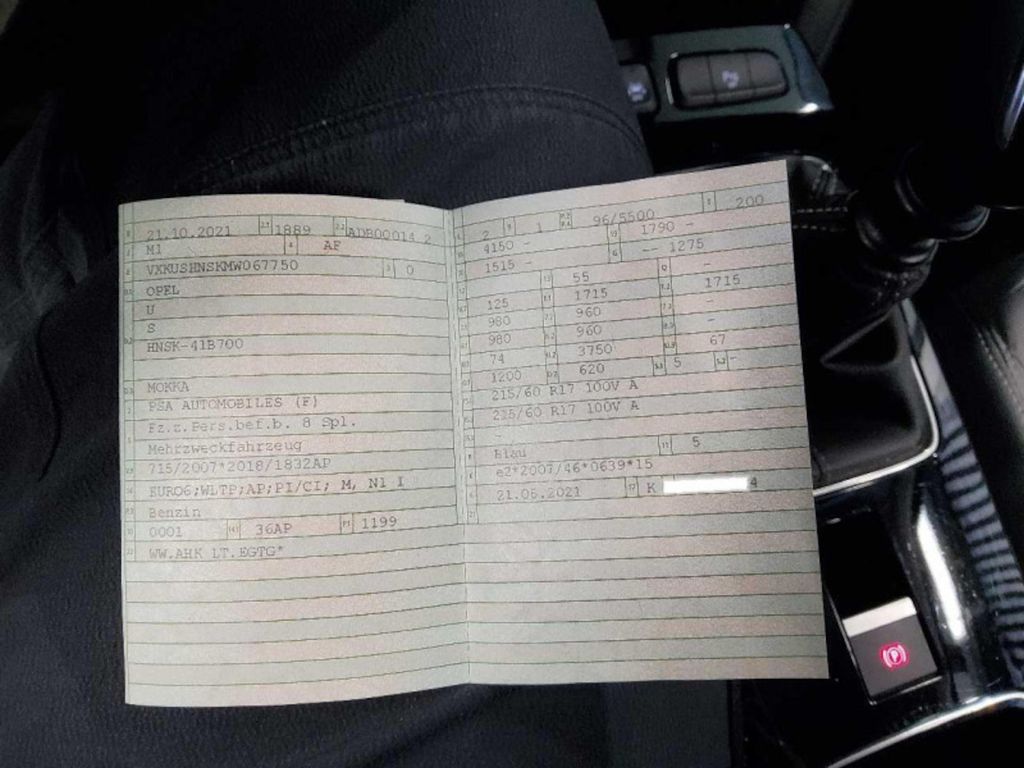 21.10.2021 1889 ADB00014 2
M1 AF
VXKUSHNSKMW067750 0
OPEL
U
S
HNSK-41B700
MOKKA
PSA AUTOMOBILES (F)
Fz.z.Pers.bef.b. 8 Spl.
Mehrzweckfahrzeug
715/2007*2018/1832AP
EURO6;WLTP;AP;PI/CI; M, N1 I
Benzin
0001 36AP 1199
WW.AHK LT.EGTG*
2 1 96/5500 200
4150 - 1790 -
1515 - -- 1275
55 -
125 1715 1715
980 960 -
980 960 -
74 3750 67
1200 620 5 -
215/60 R17 100V A
215/60 R17 100V A
-
Blau 5
e2*2007/46*0639*15
21.05.2021 K 4